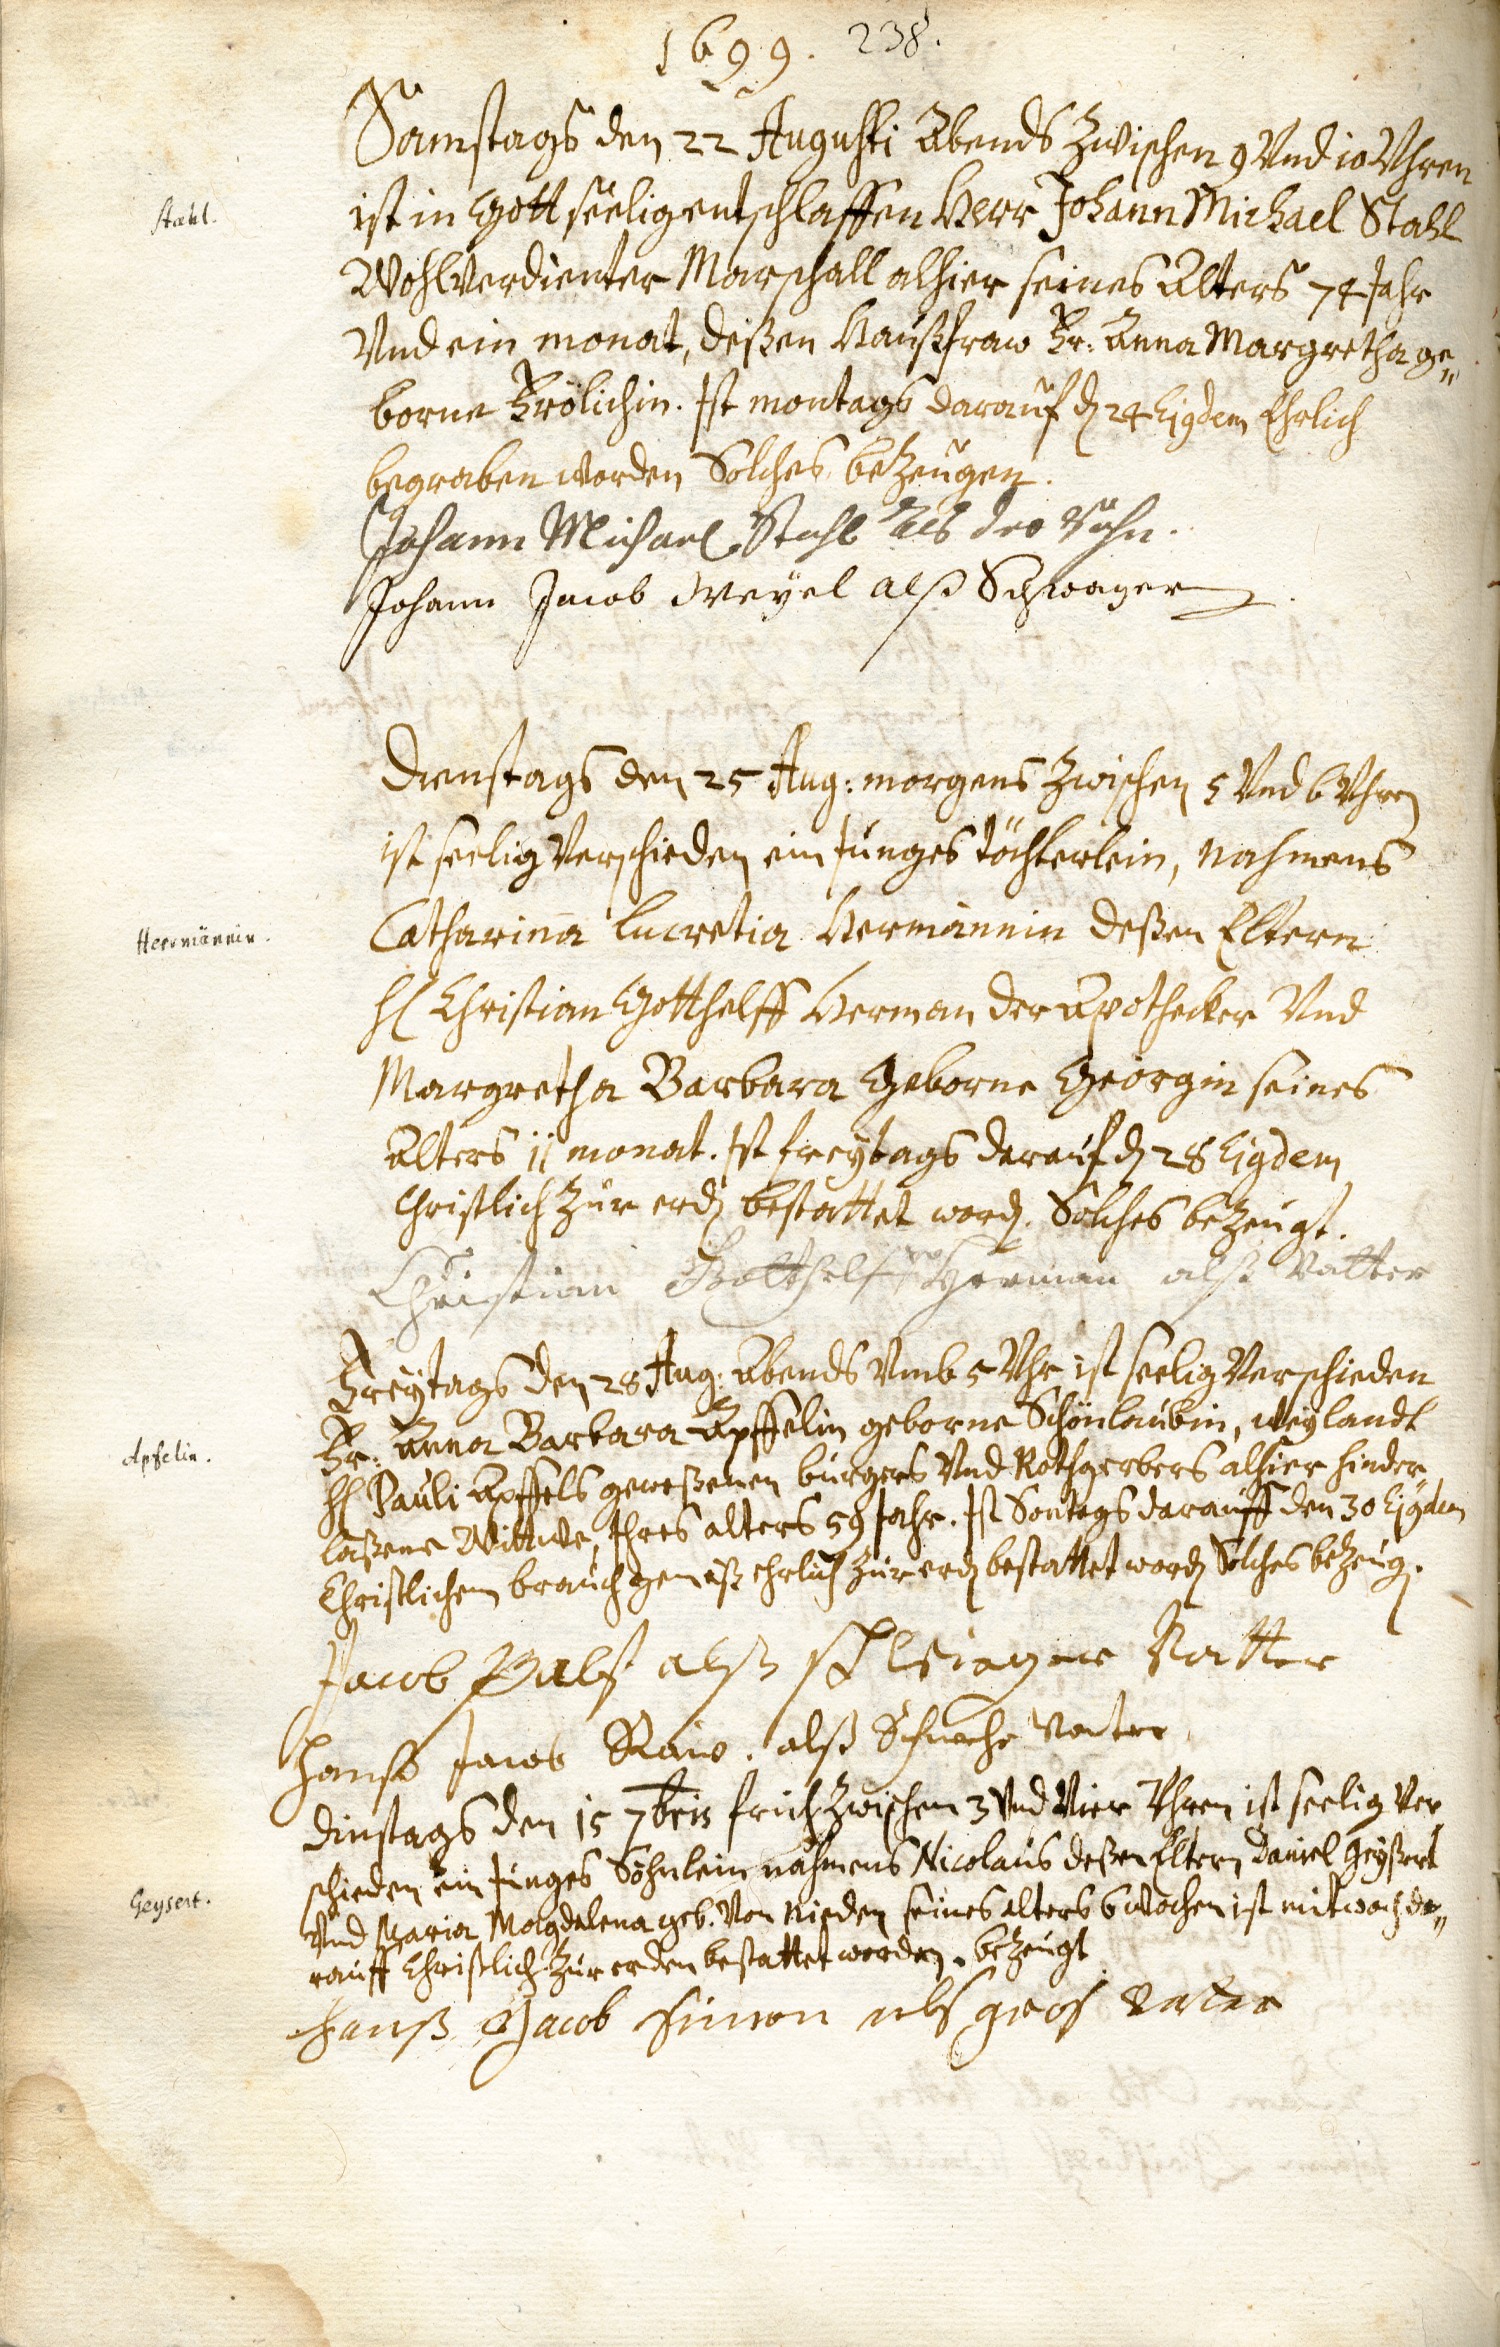 1699. 238.
Samstags den 22 Augusti Abends zwischen 9 Vnd 10 Vhren
Stahl.
ist in Gott seelig entschlaffen Herr Johann Michael Stahl
Wohlverdienter Marschall alhier seines Alters 74 Jahr
Vnd ein monat, deßen Haußfraw Fr: Anna Margretha ge„
borne Frölichin. Ist montags darauf d 24 Ejgdem Ehrlich
begraben worden Solches bezeugen.
Johann Michael Stahl als der Sohn.
Johann Jacob Weyel alß Schwager
Dienstags den 25 Aug: morgens zwischen 5 Vnd 6 Vhren
ist seelig Verschieden ein Junges töchterlein, nahmens
Herrmännin.
Catharina Lucretia Hermännin deßen Eltern
H Christian Gotthelff Herman der Apothecker Vnd
Margretha Barbara Geborne Georgin seines
Alters 11 monat. Ist freytags darauf d 28 Ejgdem
Christlich zur erd bestattet word. Solches bezeugt.
Christian Gotthelff Herman alß Vatter
Freytags den 28 Aug: Abends Vmb 5 Vhr ist seelig Verschieden
Fr: Anna Barbara Äpffelin geborne Schönlaubin, weylandt
Apfelin.
H Pauli Apffels geweßenen burgers Vnd Rothgerbers alhier hinder
laßene Wittwe, Ihres alters 59 Jahr. Ist Sontags darauff den 30 Ejgdem
Christlichem brauch gemäß ehrlich zur erd bestattet word Solches bezeug.
Jacob alß Vatter
Hanß Jacob alß Vatter
Dinstags den 15 7bris früh zwischen 3 Vnd Vier Vhren ist seelig Ver
schieden ein Junges Söhnlein nahmens Nicolaus deßen Eltern Daniel Geyßert
Geysert.
Vnd Maria Magdalena geb. Von Nieden seines alters 6 wochen ist mitwoch da„
rauff Christlich zur erden bestattet worden. bezeugt
Hanß Jacob Simon als groß Vatter